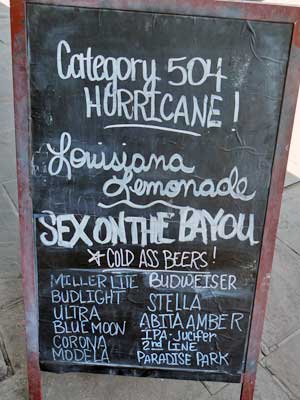 Category 504
HURRICANE!
Louisiana
Lemonade
SEX ON THE BAYOU
☆ COLD ASS BEERS!
MILLER LITE BUDWEISER
BUDLIGHT STELLA
ULTRA ABITA AMBER
BLUE MOON IPA-Jucifer
CORONA 2nd LINE
MODELA PARADISE PARK